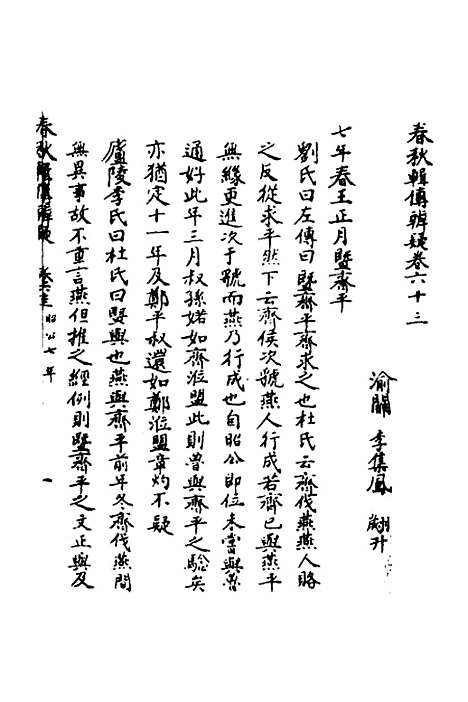 春秋輯傳辨疑卷六十三
渝關 李集鳳 翽升
七年春王正月暨齊平
劉氏曰左傳曰暨齊平齊求之也杜氏云齊伐燕燕人賂
之反從求平然下云齊侯次虢燕人行成若齊已與燕平
無緣更進次于虢而燕乃行成也自昭公即位未嘗與魯
通好此年三月叔孫婼如齊涖盟此則魯與齊平之驗矣
亦猶定十一年及鄭平叔還如鄭涖盟章灼不疑
廬陵李氏曰杜氏曰暨與也燕與齊平前年冬齊伐燕間
無異事故不重言燕但推之經例則暨齊平之文正與及
春秋輯傳辨疑 卷六十三 昭公七年 一